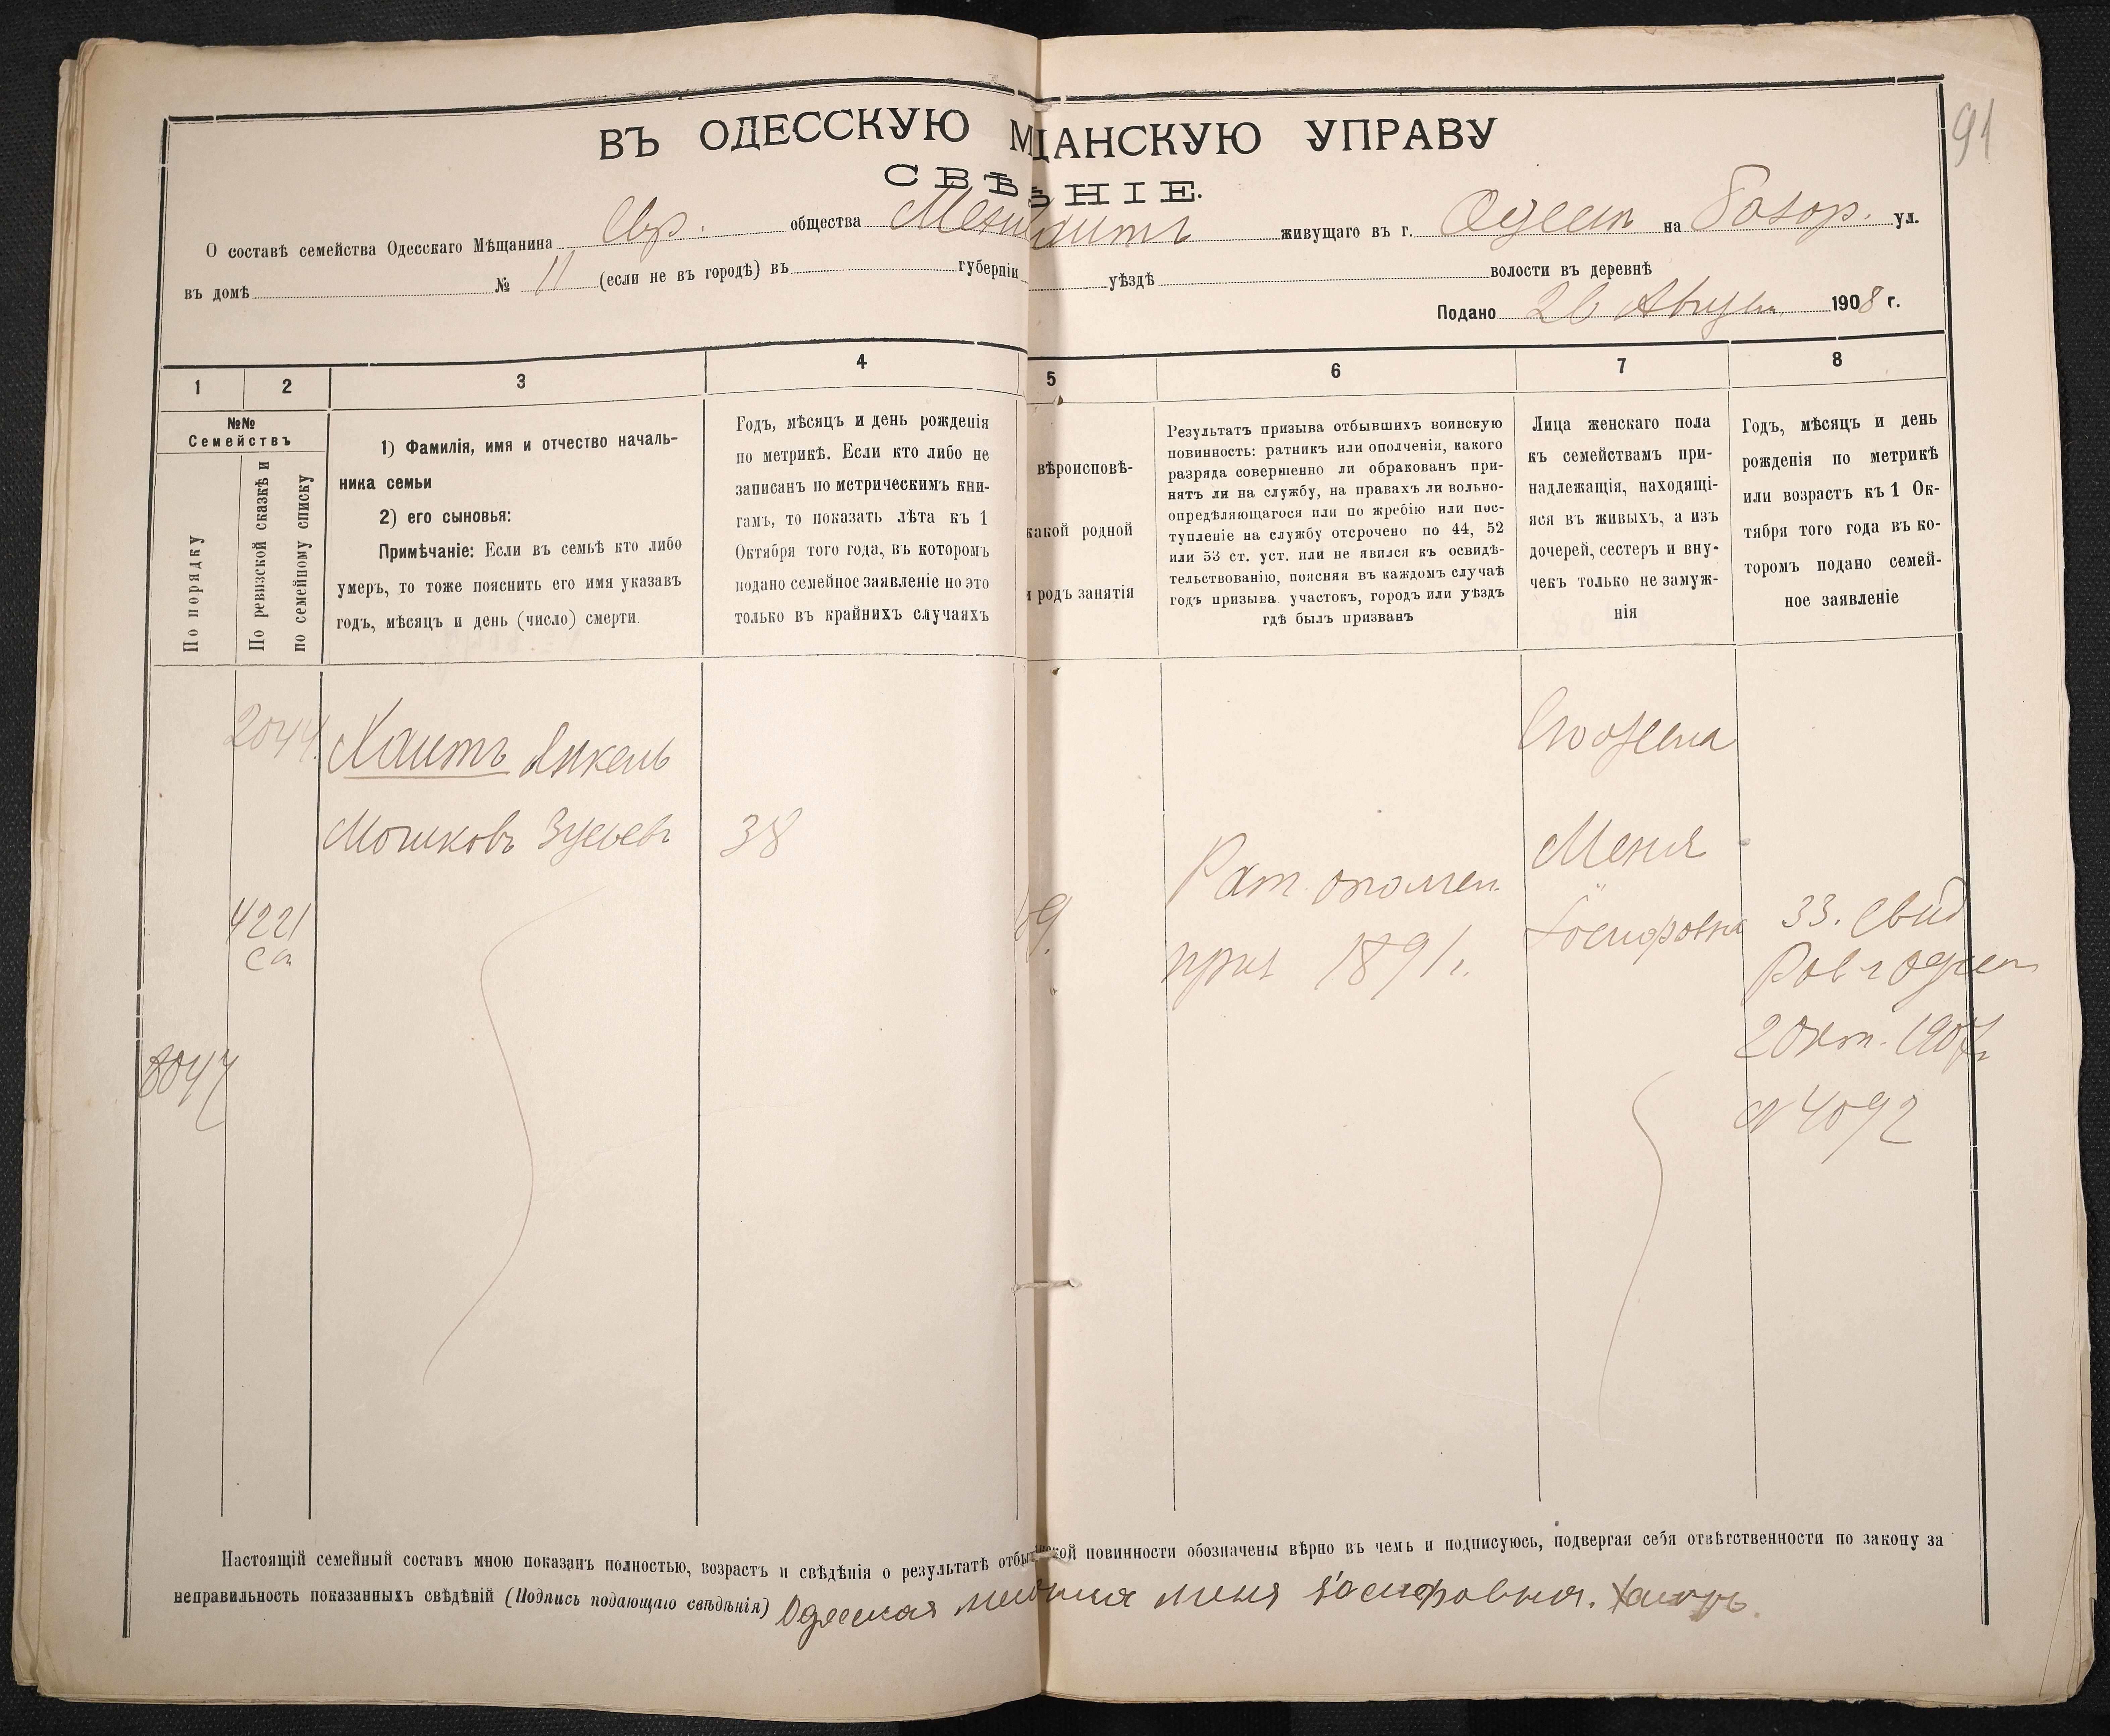 91
ВЪ ОДЕССКУЮ М ЩАНСКУЮ УПРАВУ
СВѢ НІЕ.
О составѣ семейства Одесскаго Мѣщанина Евр. общества Хаитъ живущаго въ г. Одессѣ на Базар. ул.
въ домѣ № 11 (если не въ городѣ) въ губерніи уѣздѣ волости въ деревнѣ
Подано 26 Августа 1908 г.
1 2 3 4 5 6 7 8
№№
Семействъ
По порядку
По ревизской сказкѣ и
по семейному списку
1) Фамилія, имя и отчество началь-
ника семьи
2) его сыновья:
Примѣчаніе: Если въ семьѣ кто либо
умеръ, то тоже пояснить его имя указавъ
годъ, мѣсяцъ и день (число) смерти.
Годъ, мѣсяцъ и день рожденія
по метрикѣ. Если кто либо не
записанъ по метрическимъ кни-
гамъ, то показать лѣта къ 1
Октября того года, въ которомъ
подано семейное заявленіе но это
только въ крайнихъ случаяхъ
вѣроисповѣ-
какой родной
и родъ занятія
Результатъ призыва отбывшихъ воинскую
повинность: ратникъ или ополченія, какого
разряда совершенно ли обракованъ при-
нятъ ли на службу, на правахъ ли вольно-
опредѣляющагося или по жребію или пос-
тупленіе на службу отсрочено по 44, 52
или 53 ст. уст. или не явился къ освидѣ-
тельствованію, поясняя въ каждомъ случаѣ
годъ призыва участокъ, городъ или уѣздъ
гдѣ былъ призванъ
Лица женскаго пола
къ семействамъ при-
надлежащія, находящі-
яся въ живыхъ, а изъ
дочерей, сестеръ и вну-
чекъ только не замуж-
нія
Годъ, мѣсяцъ и день
рожденія по метрикѣ
или возрастъ къ 1 Ок-
тября того года въ ко-
торомъ подано семей-
ное заявленіе
2044
Хаитъ Янкель
Мошковъ Зусьевъ
38
4221
са
8044
Рат. ополчен.
приз 1891 г.
Его жена
Меня
Іосифовна
33. Свид
Рав г Одессы
2 Окт. 1907 г
№ 4092
Настоящій семейный составъ мною показанъ полностью, возрастъ и свѣдѣнія о результатѣ отбы нской повинности обозначены вѣрно въ чемъ и подписуюсь, подвергая себя отвѣтственности по закону за
неправильность показанныхъ свѣдѣній (Подпись подающаго свѣдѣнія) Одесская Меня Іосифовна. Хаитъ